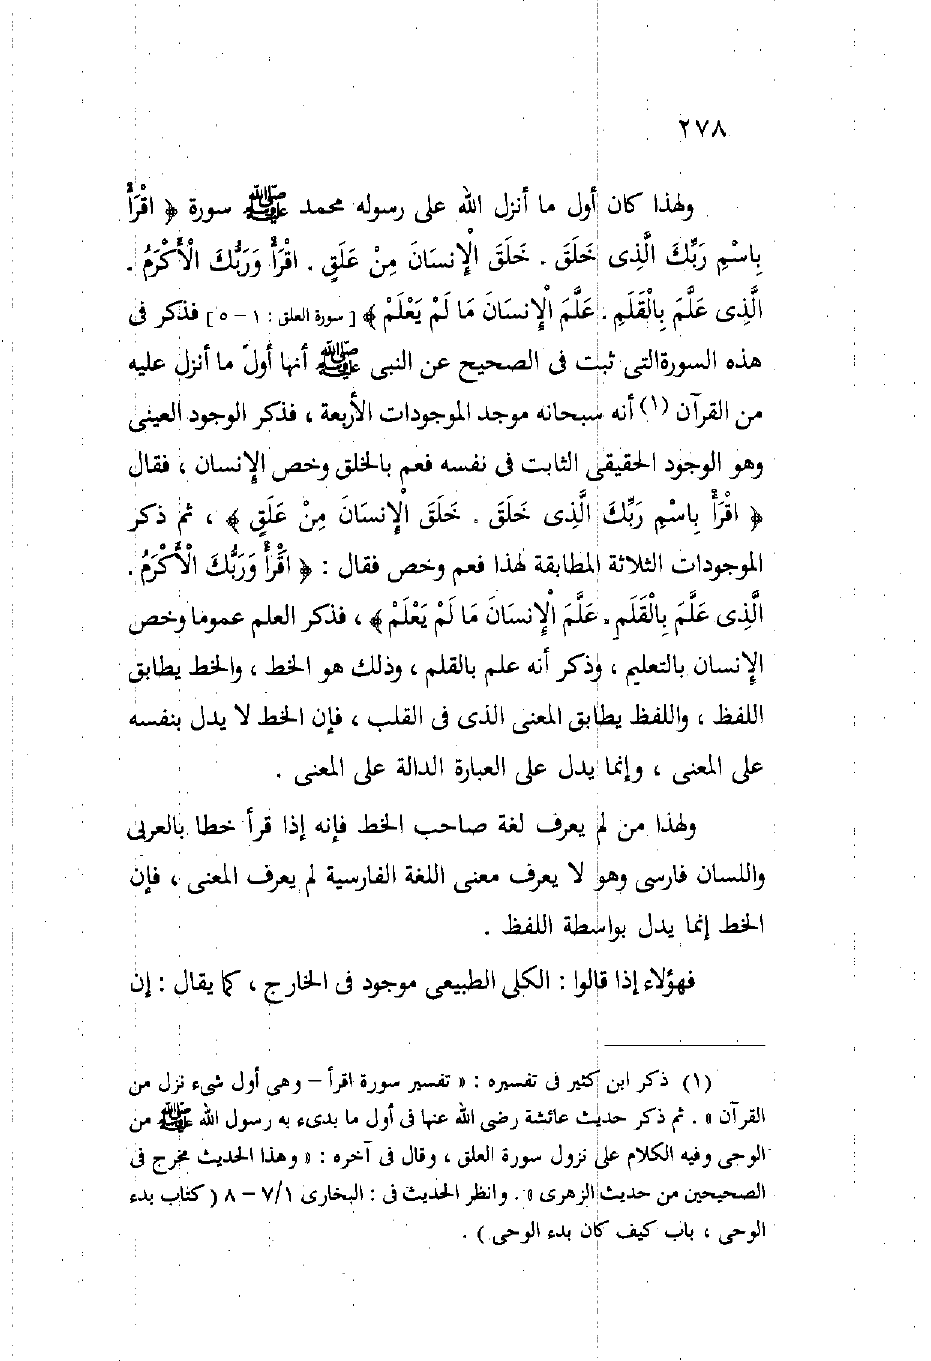 ٢٧٨
ولهذا كان أول ما أنزل الله على رسوله محمد ﷺ سورة ﴿ اقْرَأْ
بِاسْمِ رَبِّكَ الَّذِى خَلَقَ . خَلَقَ الْإِنسَانَ مِنْ عَلَقٍ . اقْرَأْ وَرَبُّكَ الْأَكْرَمُ .
الَّذِى عَلَّمَ بِالْقَلَمِ . عَلَّمَ الْإِنسَانَ مَا لَمْ يَعْلَمْ ﴾ [ سورة العلق : ١ – ٥ ] فذكر فى
هذه السورةالتى ثبت فى الصحيح عن النبى ﷺ أنها أول ما أنزل عليه
من القرآن (١) أنه سبحانه موجد الموجودات الأربعة ، فذكر الوجود العينى
وهو الوجود الحقيقى الثابت فى نفسه فعم بالخلق وخص الإنسان ، فقال
﴿ اقْرَأْ بِاسْمِ رَبِّكَ الَّذِى خَلَقَ . خَلَقَ الْإِنسَانَ مِنْ عَلَقٍ ﴾ ، ثم ذكر
الموجودات الثلاثة المطابقة لهذا فعم وخص فقال : ﴿ اقْرَأْ وَرَبُّكَ الْأَكْرَمُ .
الَّذِى عَلَّمَ بِالْقَلَمِ . عَلَّمَ الْإِنسَانَ مَا لَمْ يَعْلَمْ ﴾ ، فذكر العلم عموما وخص
الإنسان بالتعليم ، وذكر أنه علم بالقلم ، وذلك هو الخط ، والخط يطابق
اللفظ ، واللفظ يطابق المعنى الذى فى القلب ، فإن الخط لا يدل بنفسه
على المعنى ، وإنما يدل على العبارة الدالة على المعنى .
ولهذا من لم يعرف لغة صاحب الخط فإنه إذا قرأ خطا بالعربى
واللسان فارسى وهو لا يعرف معنى اللغة الفارسية لم يعرف المعنى ، فإن
الخط إنما يدل بواسطة اللفظ .
فهؤلاء إذا قالوا : الكلى الطبيعى موجود فى الخارج ، كما يقال : إن
(١) ذكر ابن كثير فى تفسيره : « تفسير سورة اقرأ – وهى أول شىء نزل من
القرآن » . ثم ذكر حديث عائشة رضى الله عنها فى أول ما بدىء به رسول الله ﷺ من
الوحى وفيه الكلام على نزول سورة العلق ، وقال فى آخره : « وهذا الحديث مخرج فى
الصحيحين من حديث الزهرى » . وانظر الحديث فى : البخارى ٧/١ – ٨ ( كتاب بدء
الوحى ، باب كيف كان بدء الوحى ) .